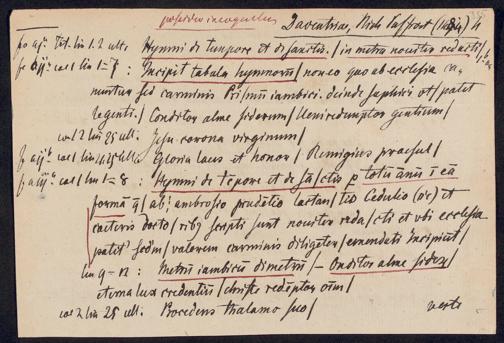 Daventriae, Rich Paffroet
fo aijª tit. lin 1.2 ults Hymni de tempore et de sanctis / in metra nouiter redacti /
fo aijᵇ col 1 lin 1-7 : Incipit tabula hymnorum / non eo quo ab ecclesia ca/
nuntur sed carminis Primum iambici. deinde saphici ut / patet
legenti. / Conditor alme siderum / Veni redemptor gentium /
col 2 lin 25 ult: Jesu corona virginum /
fo aijᵇ col 1 lin Gloria laus et honor / Remigius presul /
fo aiijª col 1 lin 1-8 : Hymni de tempore et de sanctis p totū annū ī eā
formā q̄ / ab ambrosio prudetio lactan/ Sedulio (sic) et
caeteris docto/ribꝫ scripti sunt nouiter reda/cti et vbi ecclesia
patet / valorem carminis diligēter / emendati Incipiūt /
lin 9-12 : Metrū iambicū dimetrū / — Onditor alme siderū /
eterna lux credentiū / christe redēptor oīm /
col 2 lin 25 ult: Procedens thalamo suo / verte